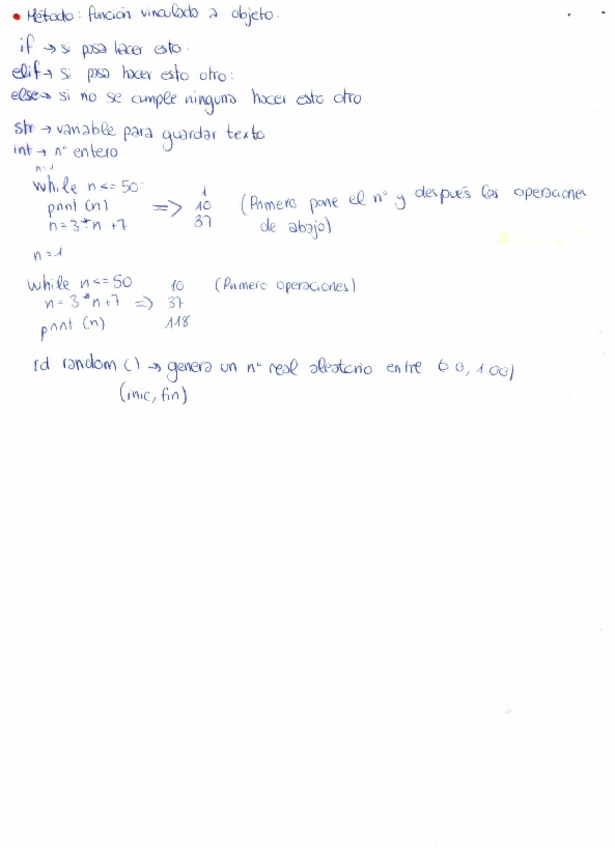 • Método: función vinculado a objeto.
if → si pasa hacer esto:
elif → si pasa hacer esto otro:
else → si no se cumple ninguna hacer esto otro
str → variable para guardar texto
int → nº entero
n=1
while n<=50:
print (n)
n=3*n+7
=> 1
10
37
(Primero pone el nº y después las operaciones
de abajo)
n=1
while n<=50
n=3*n+7
print (n)
=> 10
37
118
(Primero operaciones)
rd random () → genera un nº real aleatorio entre
(inic, fin)